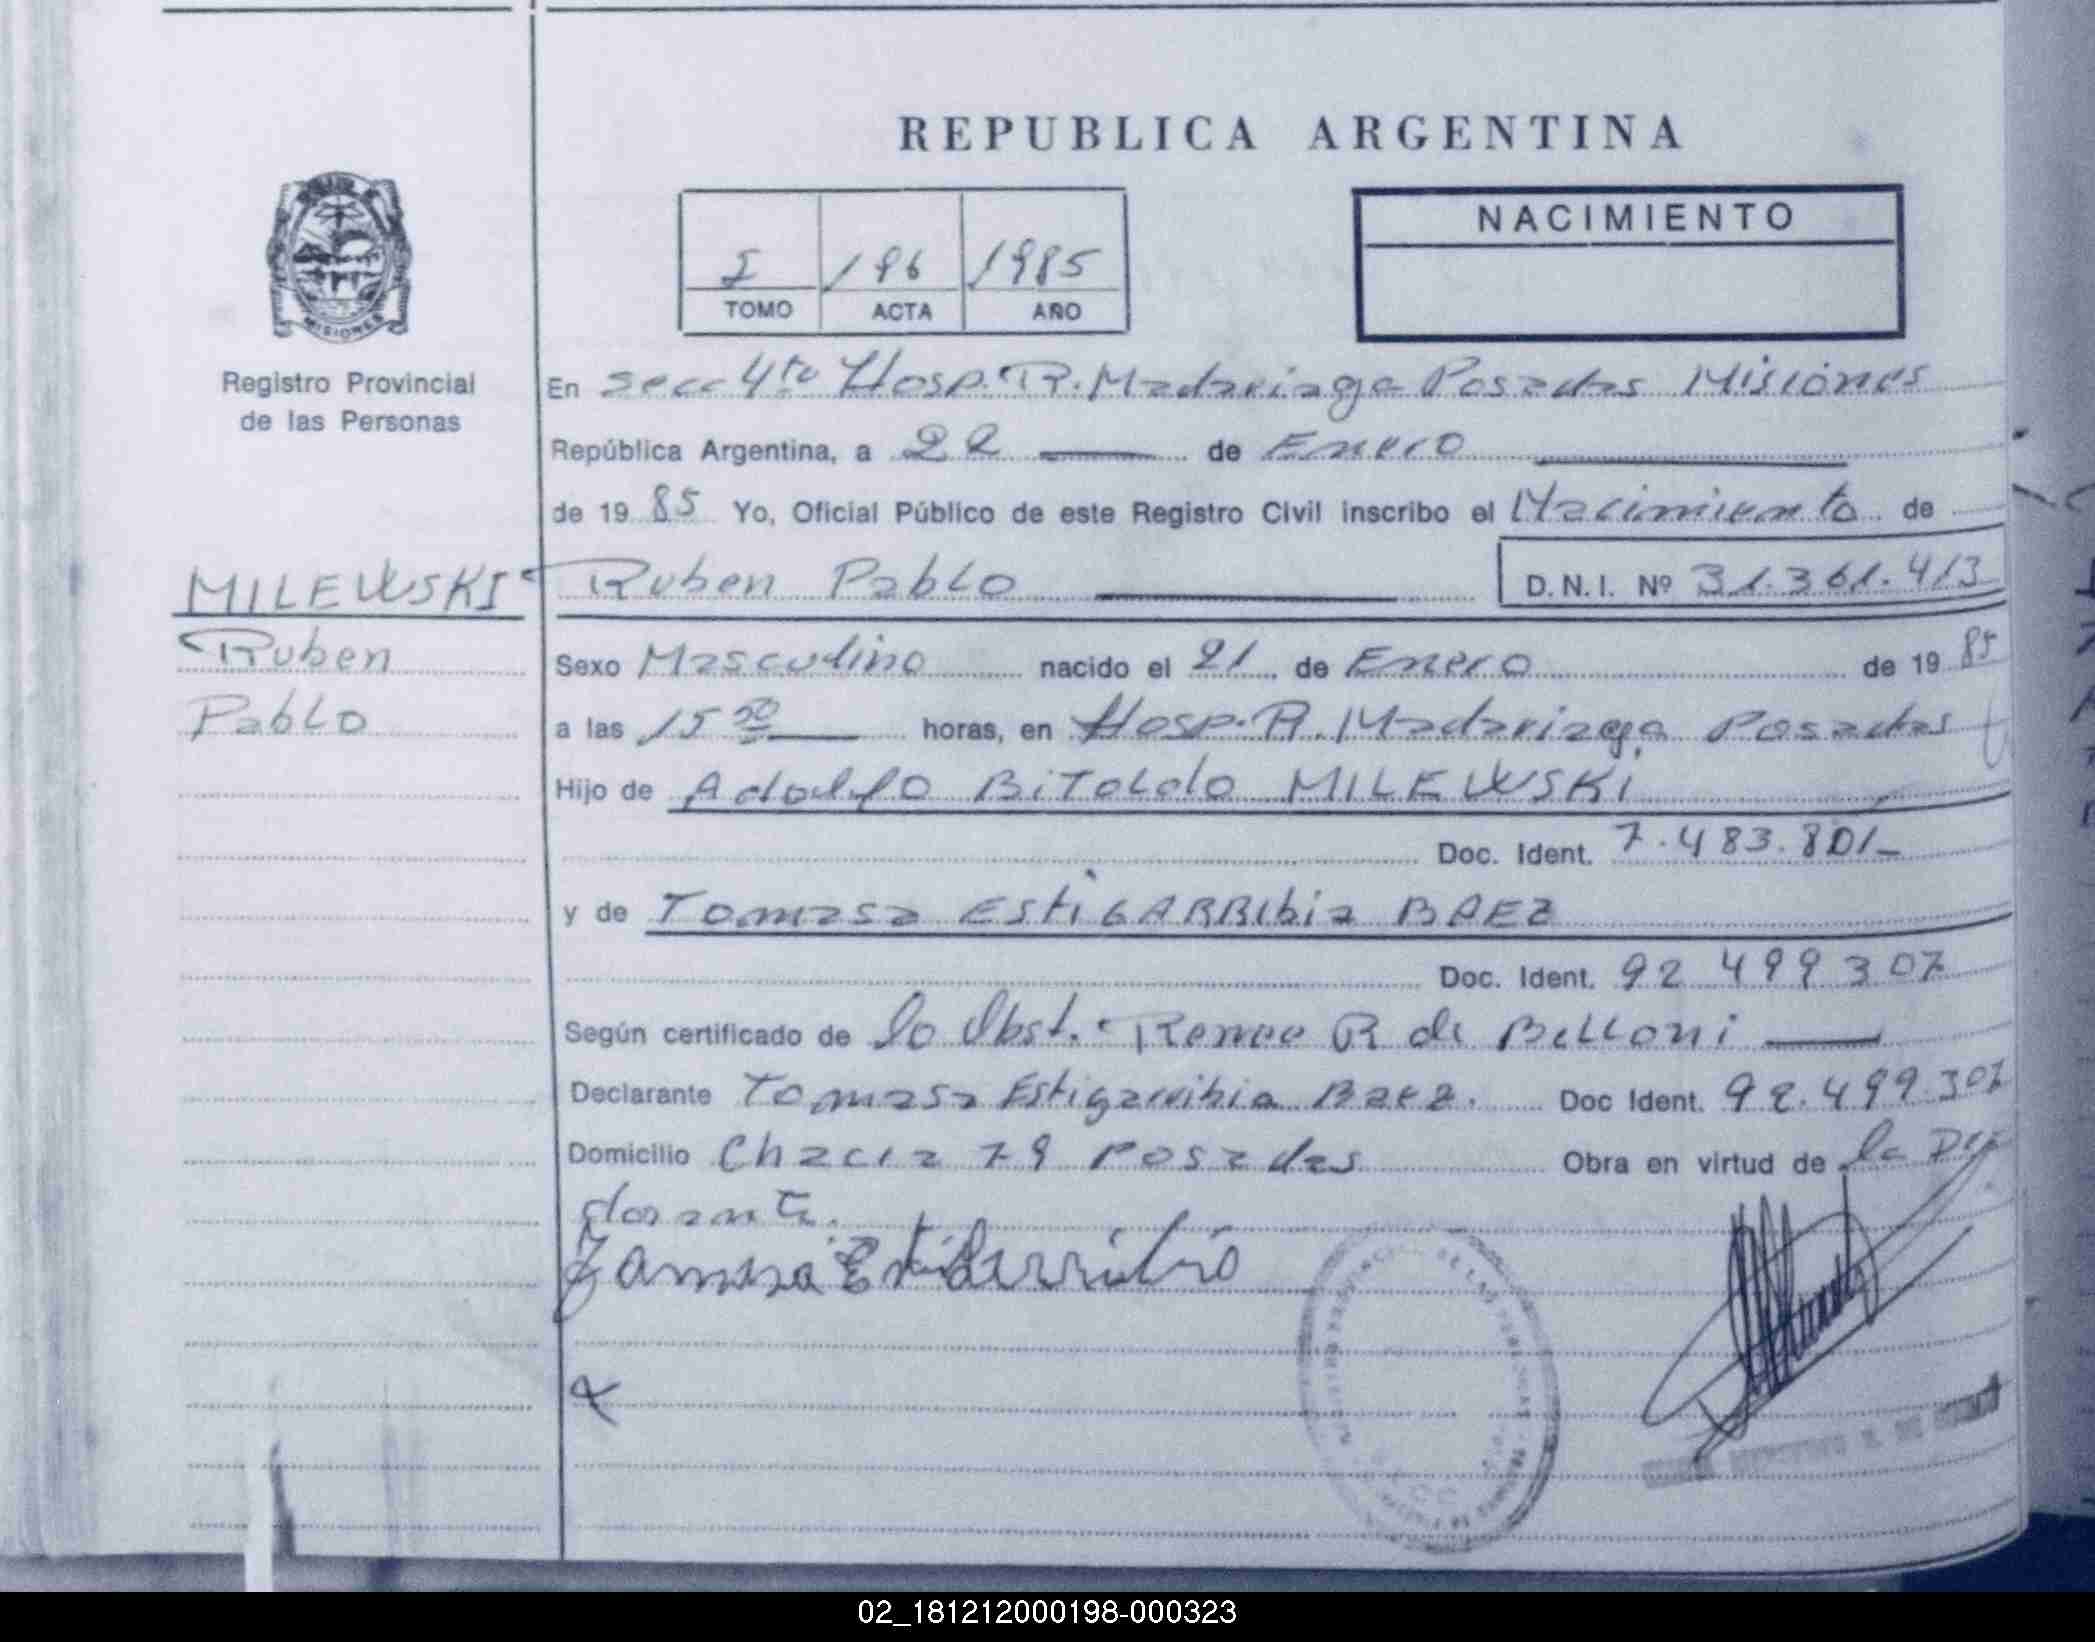 REPUBLICA ARGENTINA
NACIMIENTO
I 196 1985
TOMO ACTA AÑO
MISIONES
Registro Provincial
de las Personas
En Secc 4ta Hosp. R. Madariaga Posadas Misiones
República Argentina, a 22 de Enero
de 1985 Yo, Oficial Público de este Registro Civil inscribo el Nacimiento de
MILEWSKI Ruben Pablo D.N.I. Nº 31.361.413
Ruben
Pablo
Sexo Masculino nacido el 21 de Enero de 1985
a las 15 50 horas, en Hosp. R. Madariaga Posadas
Hijo de Adolfo BiToldo MILEWSKi
Doc. Ident. 7.483.801-
y de Tomasa ESTiGARRibia BAEZ
Doc. Ident. 92 499 307
Según certificado de la Obst. Renee R de Belloni
Declarante Tomasa Estigarribia Baez. Doc Ident. 92.499.307
Domicilio Chacra 79 Posadas Obra en virtud de la De
clarante.
Tomasa Estigarribia
02_181212000198-000323